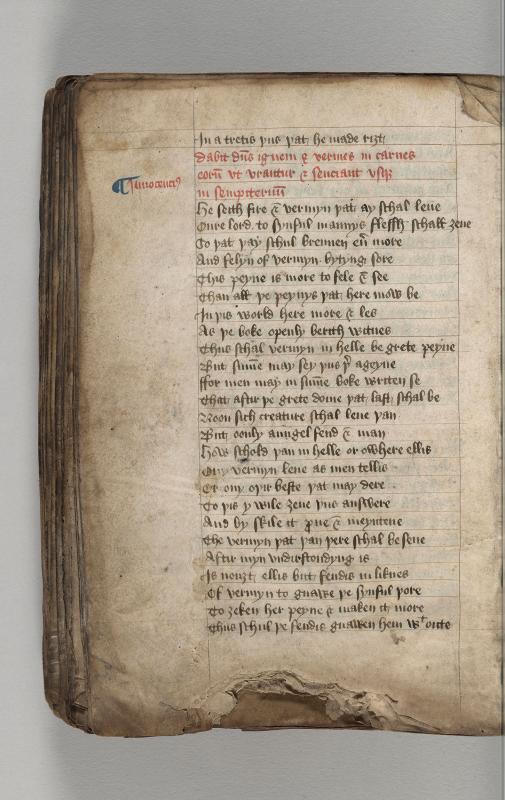 In a tretis þus þat he made riȝt
Dabit dn̄s ignem & vermes in carnes
corū vt vrantur & senciant vsq̄
in sempiternū
¶ Innocenciꝰ
He seith fire & vermyn þat ay schal leue
Oure lord to synful mannys flessh schall ȝeue
To þat þay schul brennen eū more
And felyn of vermyn bytyng sore
This peyne is more to fele & see
Than all þe peynys þat here mow be
In þis world here more & les
As þe boke openly berith witnes
Thus schal vermyn in helle be grete peyne
But summe may sey þus þͬ ageyne
ffor men may in summe boke writen se
That aftir þe grete dome þat last schal be
Noon sich creature schal leue þan
But oonly aungel fend & man
How schold þan in helle or owhere ellis
Ony vermyn leue as men tellis
Or ony oþir beste þat may dere
To þis y wile ȝeue þus answere
And by skile it ꝓue & meyntene
The vermyn þat þan þere schal be sene
Aftir myn vndirstondyng is
Is nouȝt ellis but fendis in liknes
Of vermyn to gnawe þe synful þore
To ȝeken her peyne & maken it more
Thus schul þe fendis gnawen hem wᵗ oute